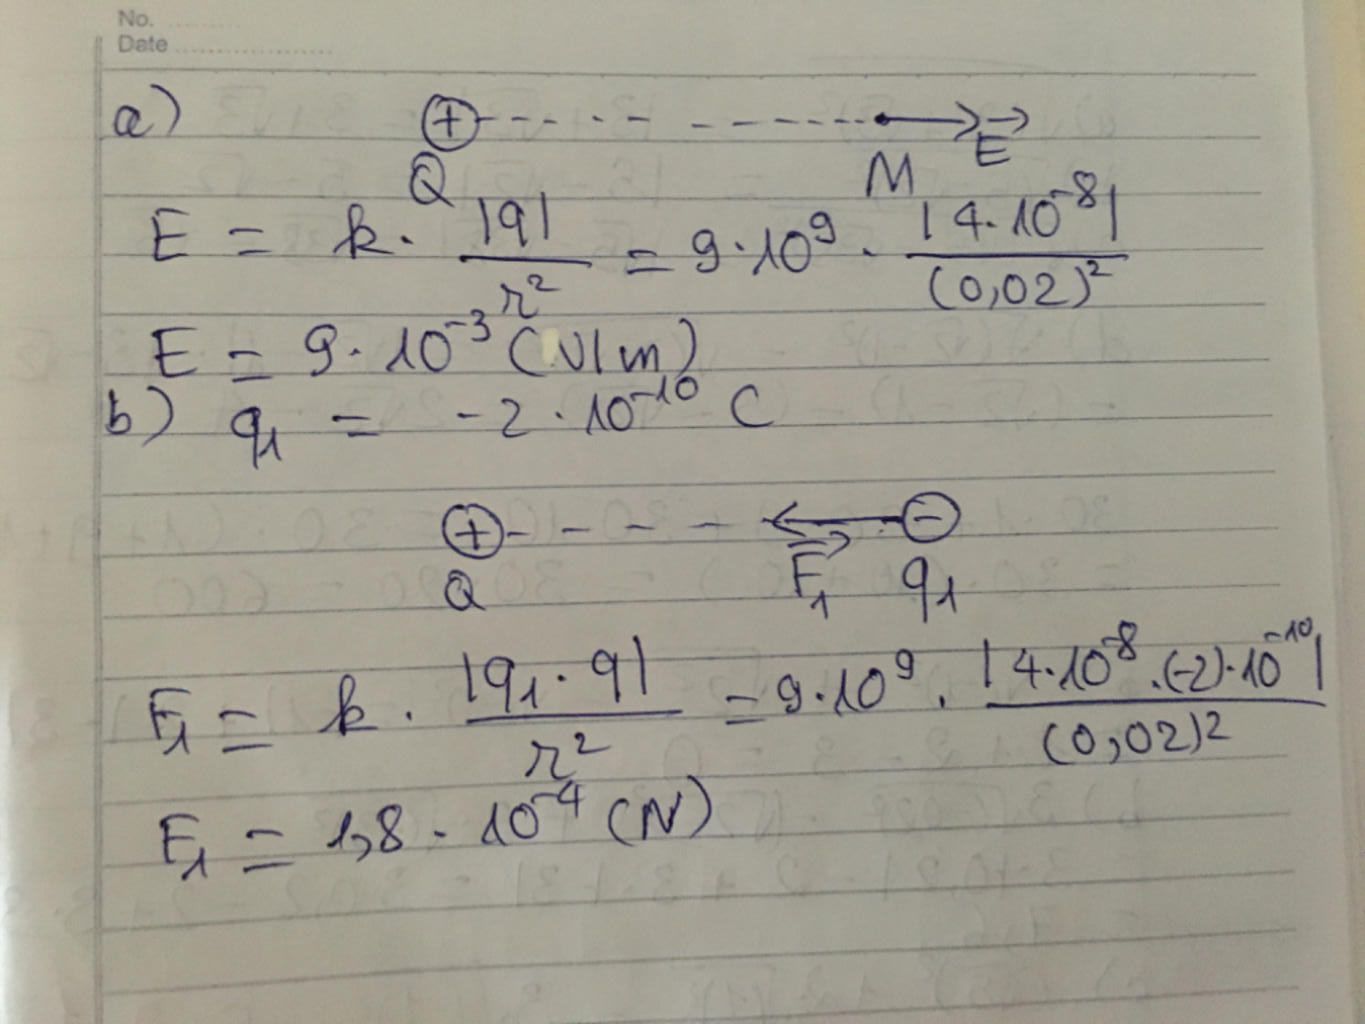 No. ..........
Date ......................
a) + M E
Q
E = k · |q| / r² = 9·10⁹ · |4·10⁻⁸| / (0,02)²
E = 9·10⁻³ (V/m)
b) q₁ = -2·10⁻¹⁰ C
+ -
Q F₁ q₁
F₁ = k · |q₁·q| / r² = 9·10⁹ · |4·10⁻⁸·(-2)·10⁻¹⁰| / (0,02)²
F₁ = 1,8·10⁻⁴ (N)